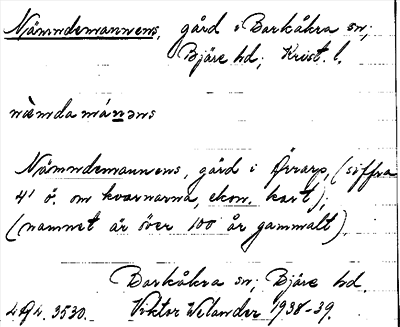 Nämndemannens, gård i Barkåkra sn;
Bjäre hd; Krist. l.
nämdamánəns
Nämndemannens, gård i Örrarp, (siffra
4¹ ö. om kvarnarna, ekon. kart);
(namnet är över 100 år gammalt)
Barkåkra sn; Bjäre hd.
494. 3530. Viktor Welander 1938-39.